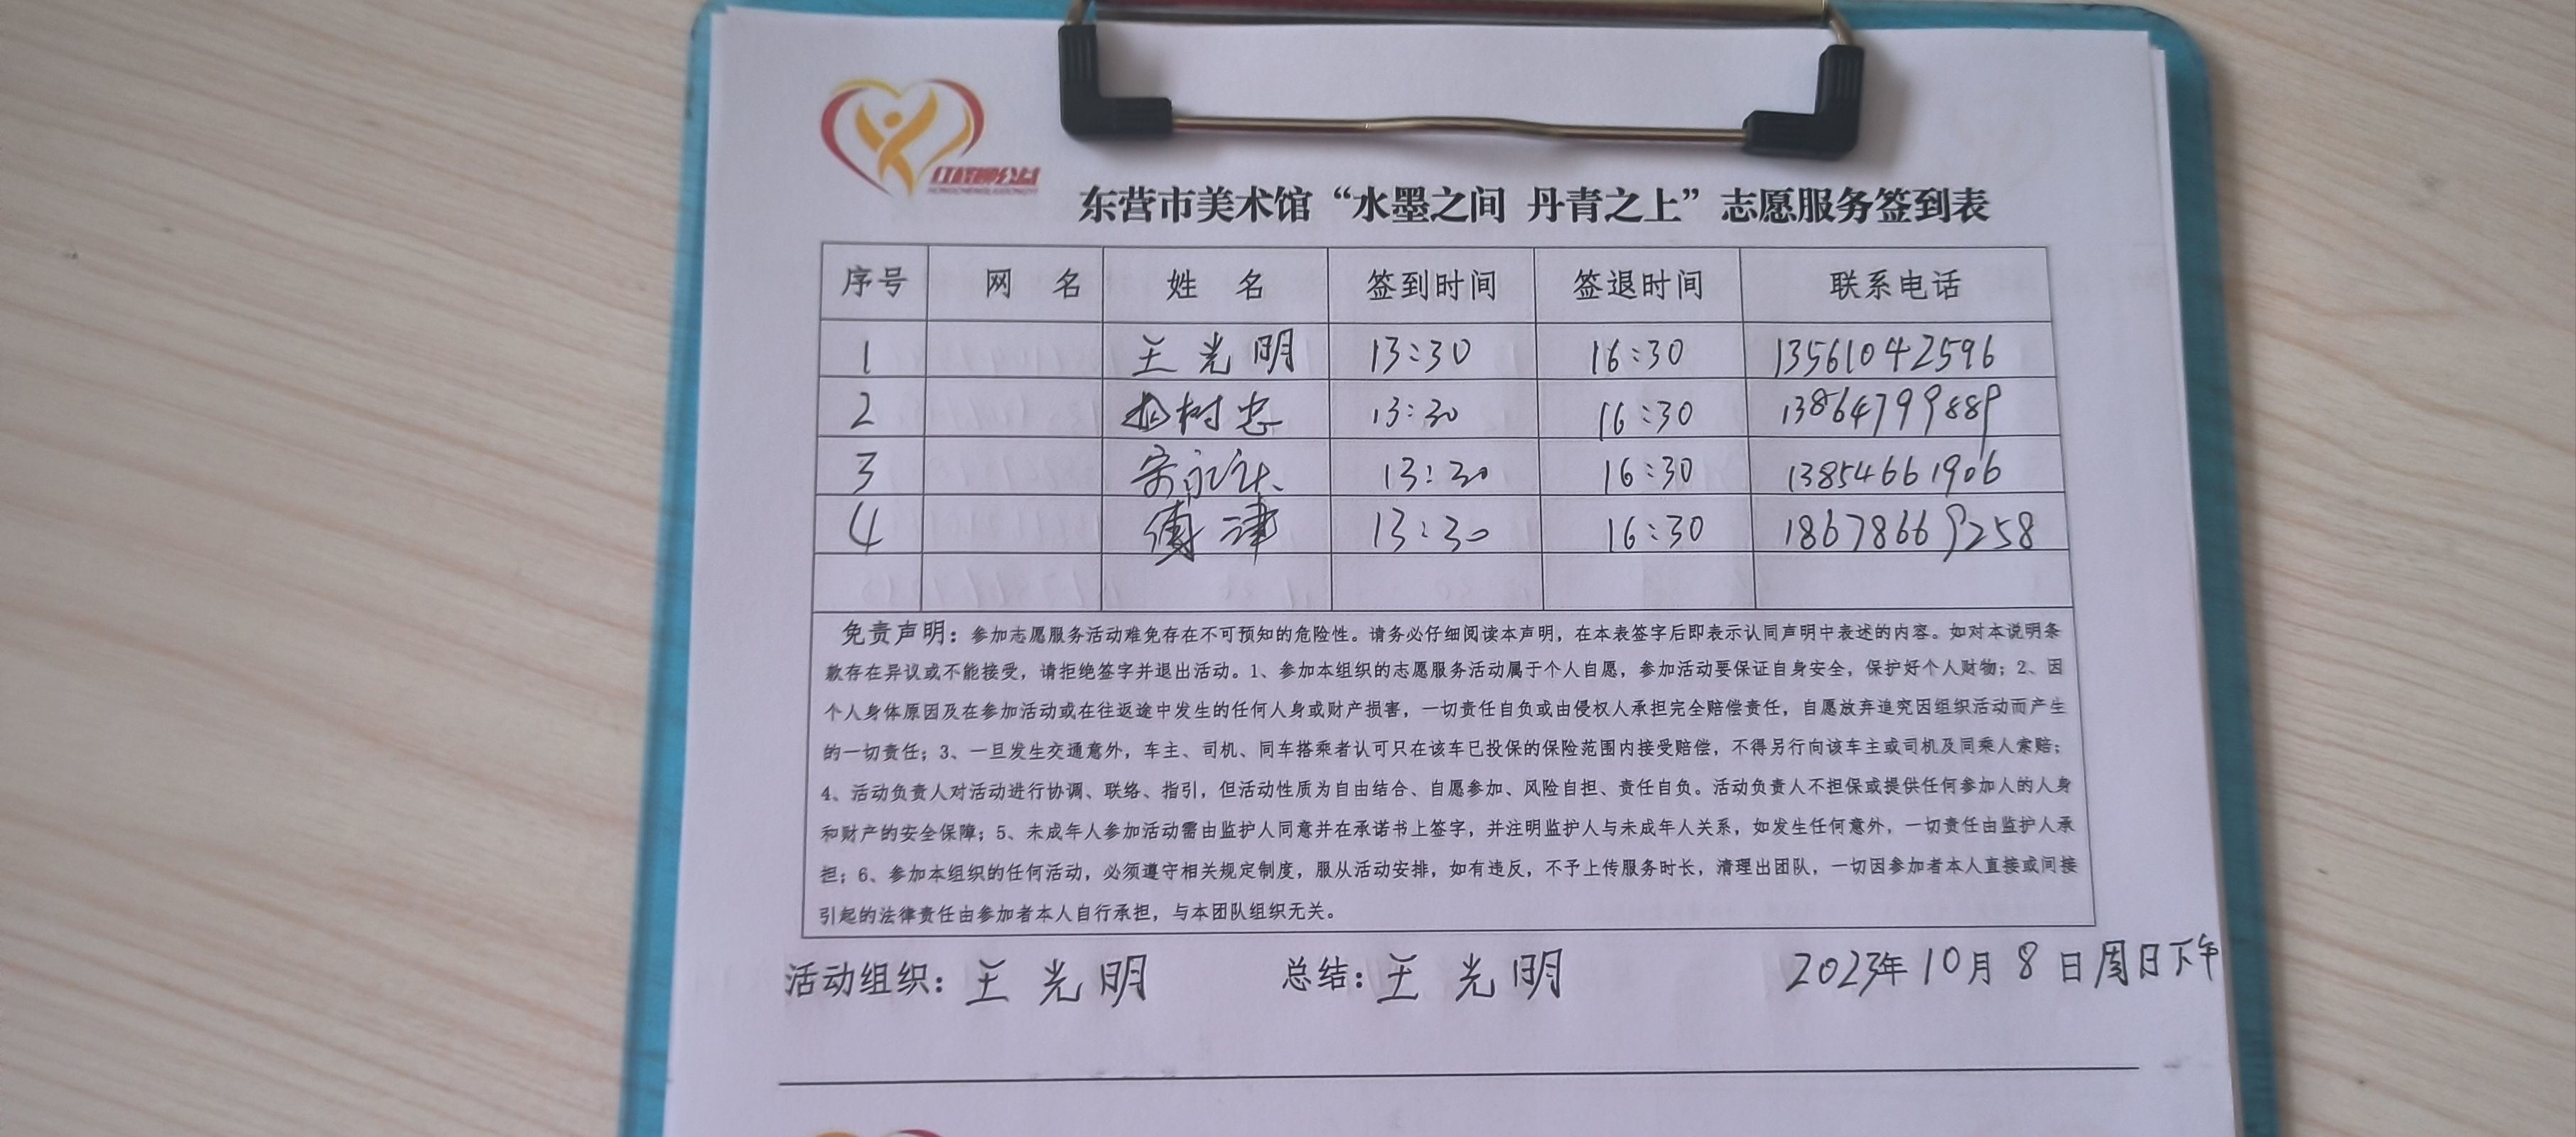 红柽柳公益
HONGCHENGLIUGONGYI
东营市美术馆“水墨之间 丹青之上”志愿服务签到表
序号 网 名 姓 名 签到时间 签退时间 联系电话
1 王光明 13:30 16:30 13561042596
2 树忠 13:30 16:30 13864799889
3 13:30 16:30 13854661906
4 傅津 13:30 16:30 18678669258
免责声明：参加志愿服务活动难免存在不可预知的危险性。请务必仔细阅读本声明，在本表签字后即表示认同声明中表述的内容。如对本说明条
款存在异议或不能接受，请拒绝签字并退出活动。1、参加本组织的志愿服务活动属于个人自愿，参加活动要保证自身安全，保护好个人财物；2、因
个人身体原因及在参加活动或在往返途中发生的任何人身或财产损害，一切责任自负或由侵权人承担完全赔偿责任，自愿放弃追究因组织活动而产生
的一切责任；3、一旦发生交通意外，车主、司机、同车搭乘者认可只在该车已投保的保险范围内接受赔偿，不得另行向该车主或司机及同乘人索赔；
4、活动负责人对活动进行协调、联络、指引，但活动性质为自由结合、自愿参加、风险自担、责任自负。活动负责人不担保或提供任何参加人的人身
和财产的安全保障；5、未成年人参加活动需由监护人同意并在承诺书上签字，并注明监护人与未成年人关系，如发生任何意外，一切责任由监护人承
担；6、参加本组织的任何活动，必须遵守相关规定制度，服从活动安排，如有违反，不予上传服务时长，清理出团队，一切因参加者本人直接或间接
引起的法律责任由参加者本人自行承担，与本团队组织无关。
活动组织：王光明 总结：王光明 2023年10月8日周日下午